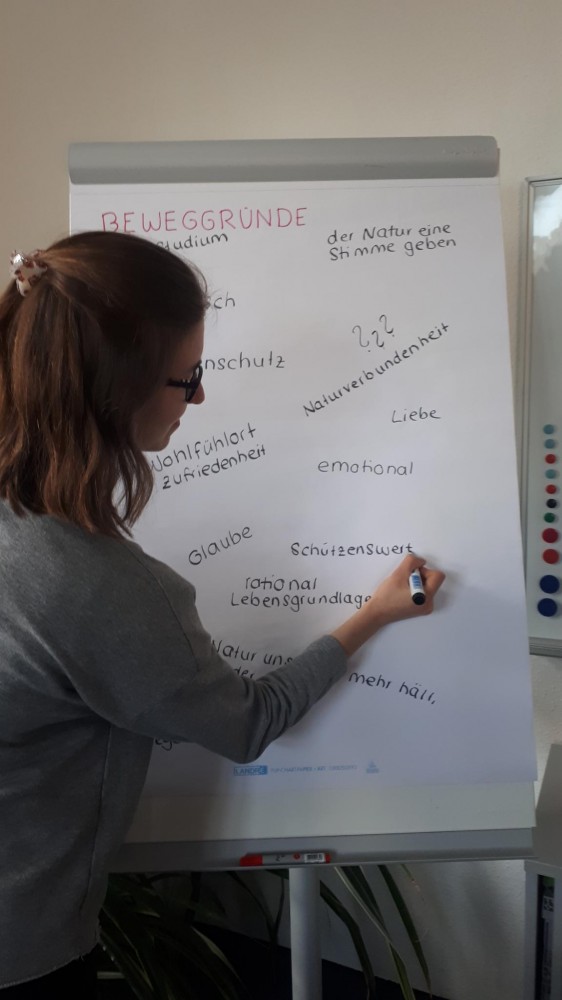 BEWEGGRÜNDE
der Natur eine
Stimme geben
???
Naturverbundenheit
Liebe
Wohlfühlort
zufriedenheit
emotional
Glaube
Schützenswert
rational
Lebensgrundlage
Natur uns
mehr hält,